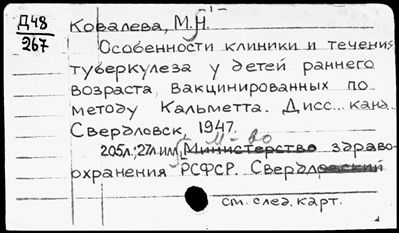 -1-
Д48
267
Ковалева, М.Н.
Особенности клиники и течения
туберкулеза у детей раннего
возраста, вакцинированных по
методу Кальметта. Дисс... канд.
Свердловск, 1947.
м-во
205л.; 27л.ил. [Министерство здраво-
охранения РСФСР. Свердловский
см. след. карт.